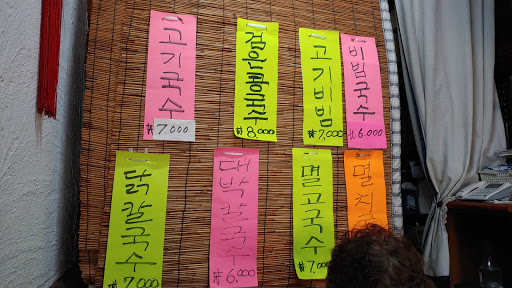 고기국수
₩7,000
검은콩국수
₩8,000
고기비빔
₩7,000
비빔국수
₩6,000
닭칼국수
₩7,000
대박칼국수
₩6,000
멸고국수
₩7,0
멸치